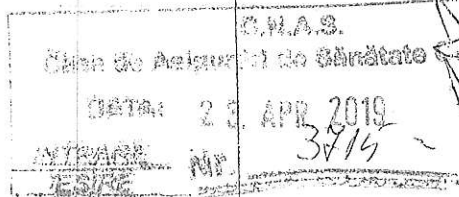 C.N.A.S.
de Asigurări de Sănătate
DATA: 2 3. APR. 2019
INTRARE
IEȘIRE Nr. 3715